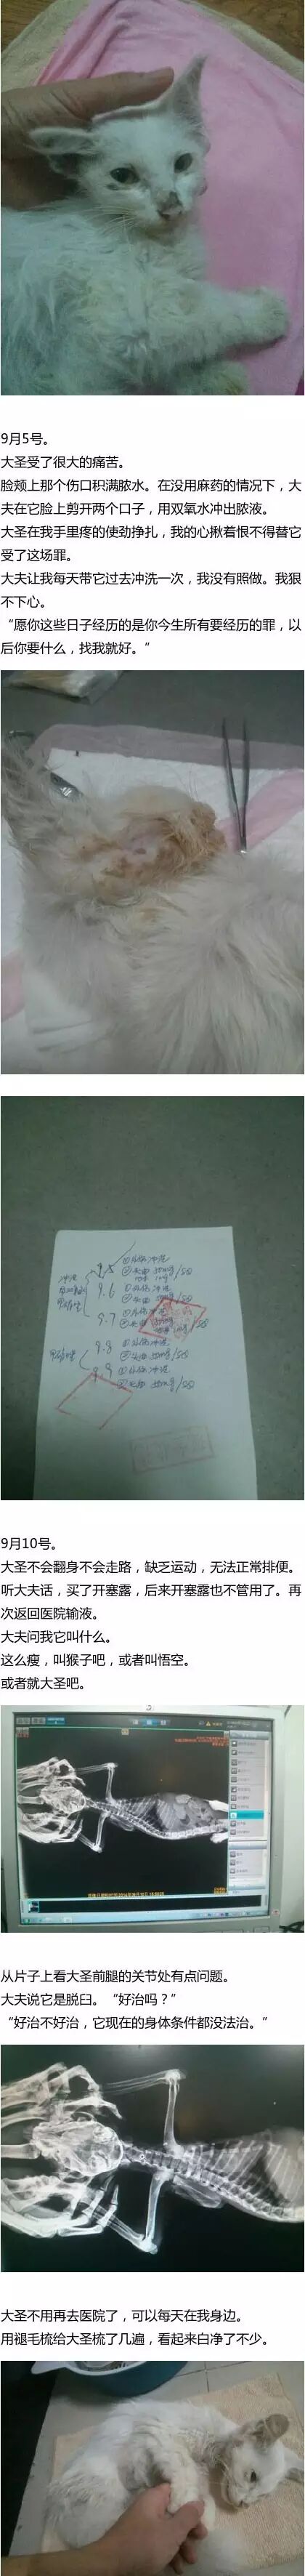 9月5号。
大圣受了很大的痛苦。
脸颊上那个伤口积满脓水。在没用麻药的情况下，大
夫在它脸上剪开两个口子，用双氧水冲出脓液。
大圣在我手里疼的使劲挣扎，我的心揪着恨不得替它
受了这场罪。
大夫让我每天带它过去冲洗一次，我没有照做。我狠
不下心。
“愿你这些日子经历的是你今生所有要经历的罪，以
后你要什么，找我就好。”
9.6
9.7
9.8
9.9
9月10号。
大圣不会翻身不会走路，缺乏运动，无法正常排便。
听大夫话，买了开塞露，后来开塞露也不管用了。再
次返回医院输液。
大夫问我它叫什么。
这么瘦，叫猴子吧，或者叫悟空。
或者就大圣吧。
从片子上看大圣前腿的关节处有点问题。
大夫说它是脱臼。“好治吗？”
“好治不好治，它现在的身体条件都没法治。”
大圣不用再去医院了，可以每天在我身边。
用褪毛梳给大圣梳了几遍，看起来白净了不少。